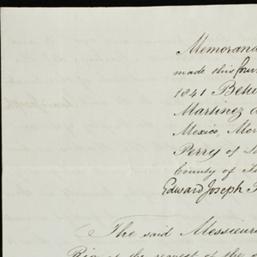 Memorand
made this four
1841 Betw
Martinez d
Mexico, Mer
Perry of
County of
Edward Joseph
The said Messieur
Rio at the request of the